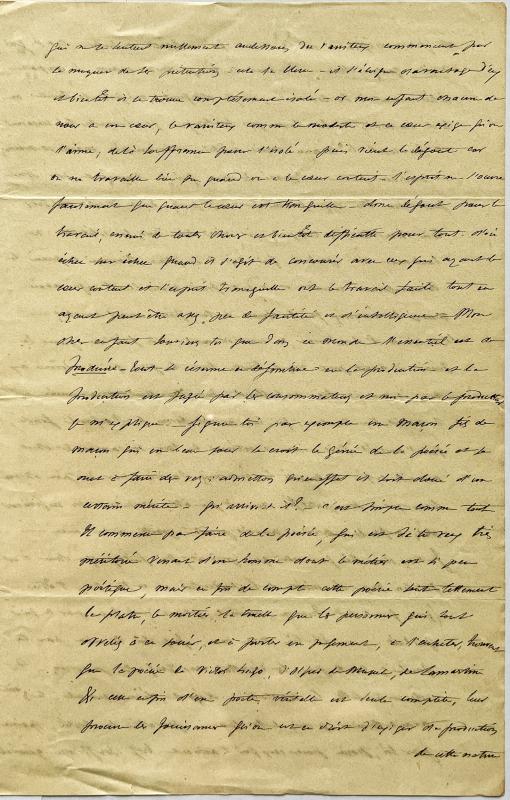 qui ne se sentent nullement au dessous du vaniteux commencent par
se moquer de ses prétentions cela le blesse - et l'éloigne davantage d'eux
et bientôt il se trouve complètement isolé - or mon enfant chacun de
nous a un coeur, le vaniteux comme le modeste et ce coeur exige qu'on
l'aime, delà souffrance pour l'isolé - puis vient le dégout car
on ne travaille bien que quand on a le coeur content - l'esprit ne s'ouvre
facilement que quand le coeur est tranquille - donc dégout pour le
travail, ennui de toutes choses et bientôt difficulté pour tout d'où
échec sur échec quand il s'agit de concourir avec ceux qui ayant le
coeur content et l'esprit tranquille ont le travail facile tout en
ayant peut être assez peu de facilité et d'intelligence - Mon
cher enfant souviens toi que dans ce monde l'essentiel est de
produire - tout se résume en définitive en la production et la
production est jugée par les consommateurs et non par le producteur
je m'explique - figure toi par exemple un maçon fils de
maçon qui un beau jour se croit le génie de la poésie et se
met à faire des vers : admettons qu'en effet il soit doué d'un
certain mérite - qu'arrive t il ? c'est simple comme tout
Il commence par faire de la poésie, qui est déjà très
méritoire venant d'un homme dont le métier est si peu
poétique, mais en fin de compte cette poésie sent tellement
le plâtre, le mortier, la truelle que les personnes qui sont
appelés à en jouir, et à porter un jugement, à l'acheter, trouvent
que la poésie de Victor hugo, d'Alfred de Musset, de Lamartine
&c ceux enfin d'un poëte véritable est seule complète, leur
procure les jouissances qu'on est en droit d'exiger de productions
de cette nature